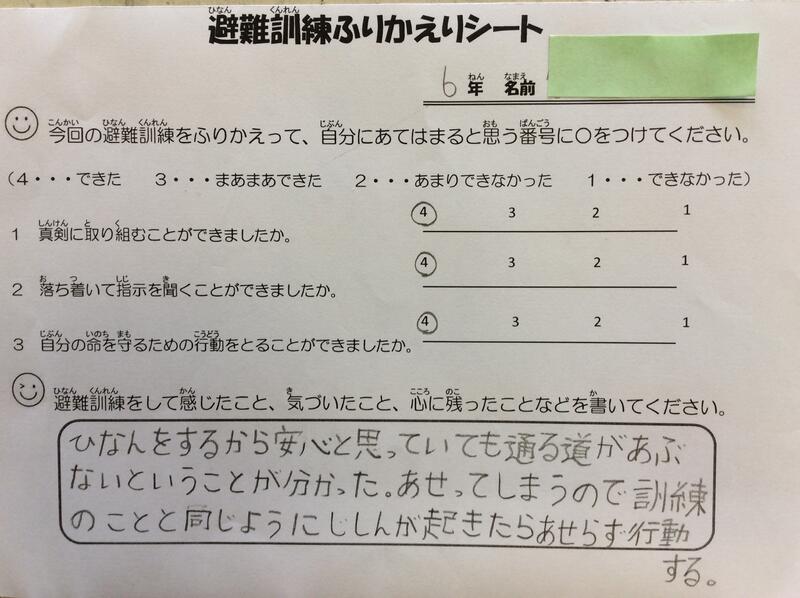 避難訓練ふりかえりシート
6年 名前
今回の避難訓練をふりかえって、自分にあてはまると思う番号に〇をつけてください。
(4・・・できた 3・・・まあまあできた 2・・・あまりできなかった 1・・・できなかった)
1 真剣に取り組むことができましたか。 4 3 2 1
2 落ち着いて指示を聞くことができましたか。 4 3 2 1
3 自分の命を守るための行動をとることができましたか。 4 3 2 1
避難訓練をして感じたこと、気づいたこと、心に残ったことなどを書いてください。
ひなんをするから安心と思っていても通る道があぶ
ないということが分かった。あせってしまうので訓練
のことと同じようにじしんが起きたらあせらず行動
する。